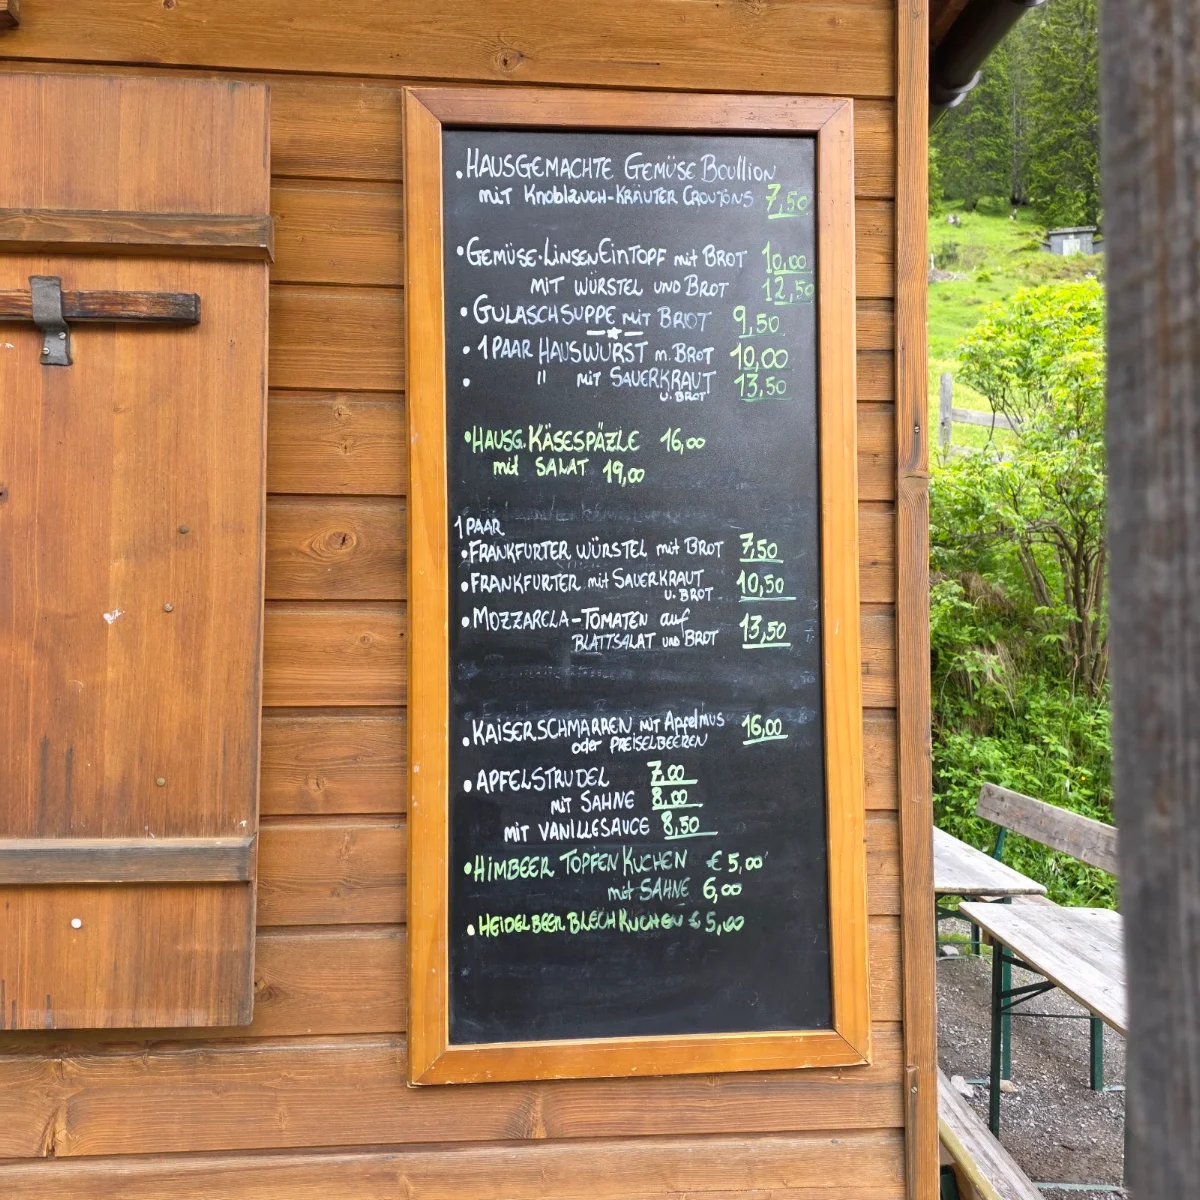 • HAUSGEMACHTE GEMÜSE Boullion
mit Knoblauch-KRÄUTER CROUTONS 7,50
• GEMÜSE-LINSENEINTOPF mit BROT 10,00
MIT WÜRSTEL UND BROT 12,50
• GULASCHSUPPE MIT BROT 9,50
• 1 PAAR HAUSWURST m. BROT 10,00
• " mit SAUERKRAUT 13,50
U. BROT
• HAUSG. KÄSESPÄZLE 16,00
mit SALAT 19,00
1 PAAR
• FRANKFURTER WÜRSTEL mit BROT 7,50
• FRANKFURTER mit SAUERKRAUT 10,50
U. BROT
• MOZZARELA-TOMATEN auf 13,50
BLATTSALAT UND BROT
• KAISERSCHMARREN mit Apfelmus 16,00
oder PREISELBEEREN
• APFELSTRUDEL 7,00
mit SAHNE 8,00
MIT VANILLESAUCE 8,50
• HIMBEER TOPFEN KUCHEN € 5,00
mit SAHNE 6,00
• HEIDELBEER BLECHKUCHEN € 5,00